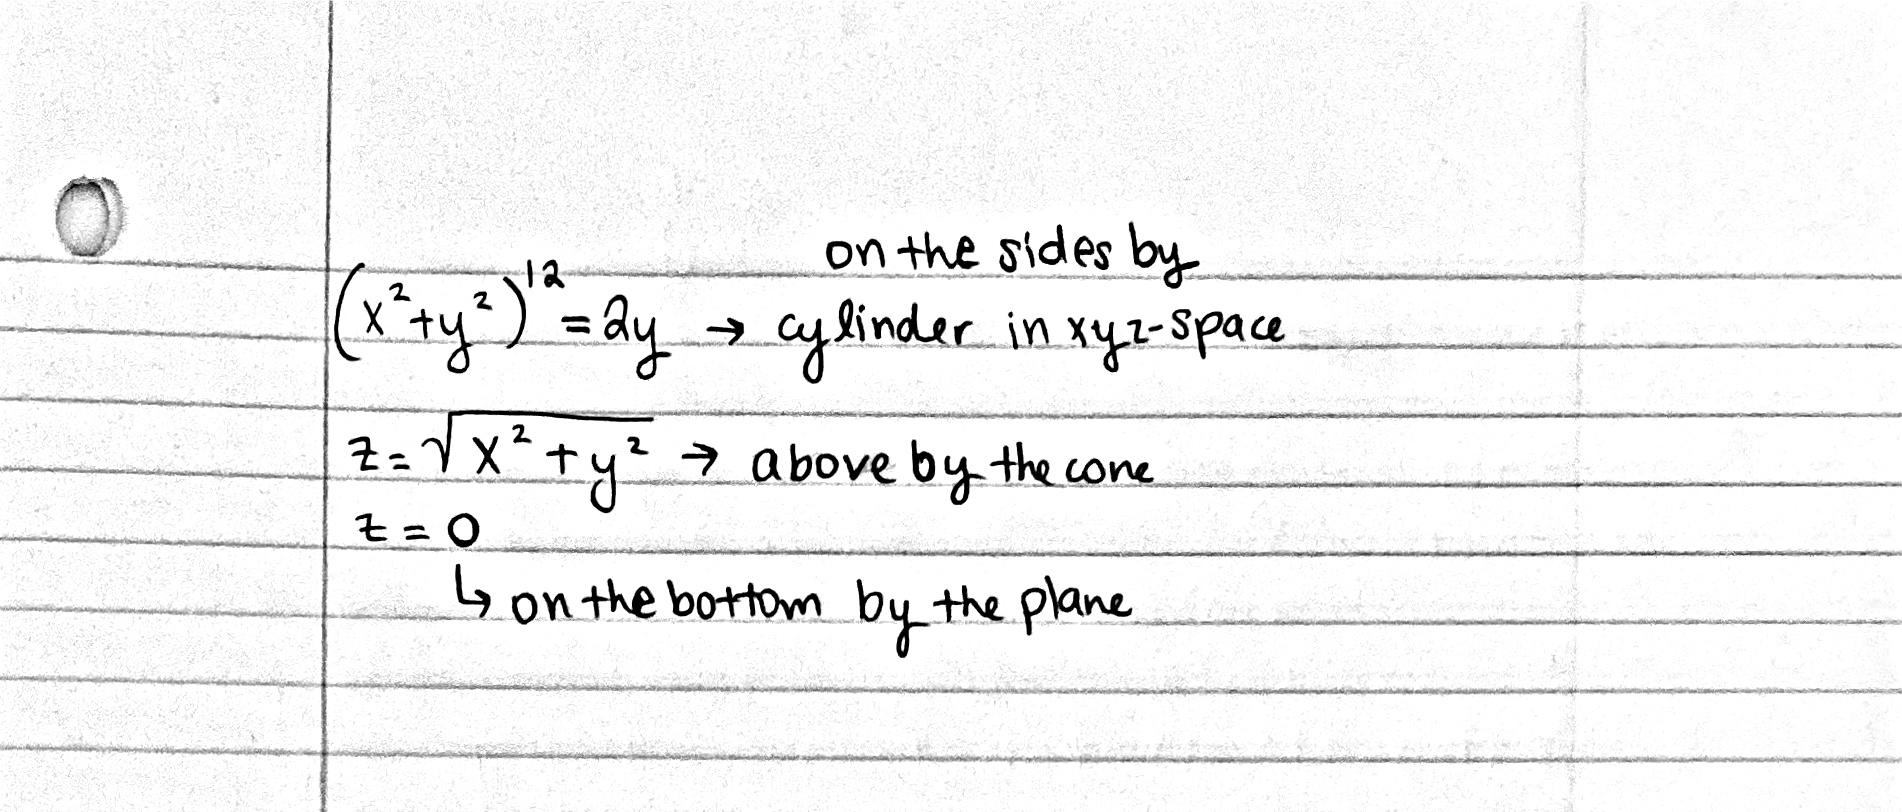 on the sides by
(x²+y²)¹² = 2y → cylinder in xyz-space
z = √(x² + y²) → above by the cone
z = 0
↳ on the bottom by the plane